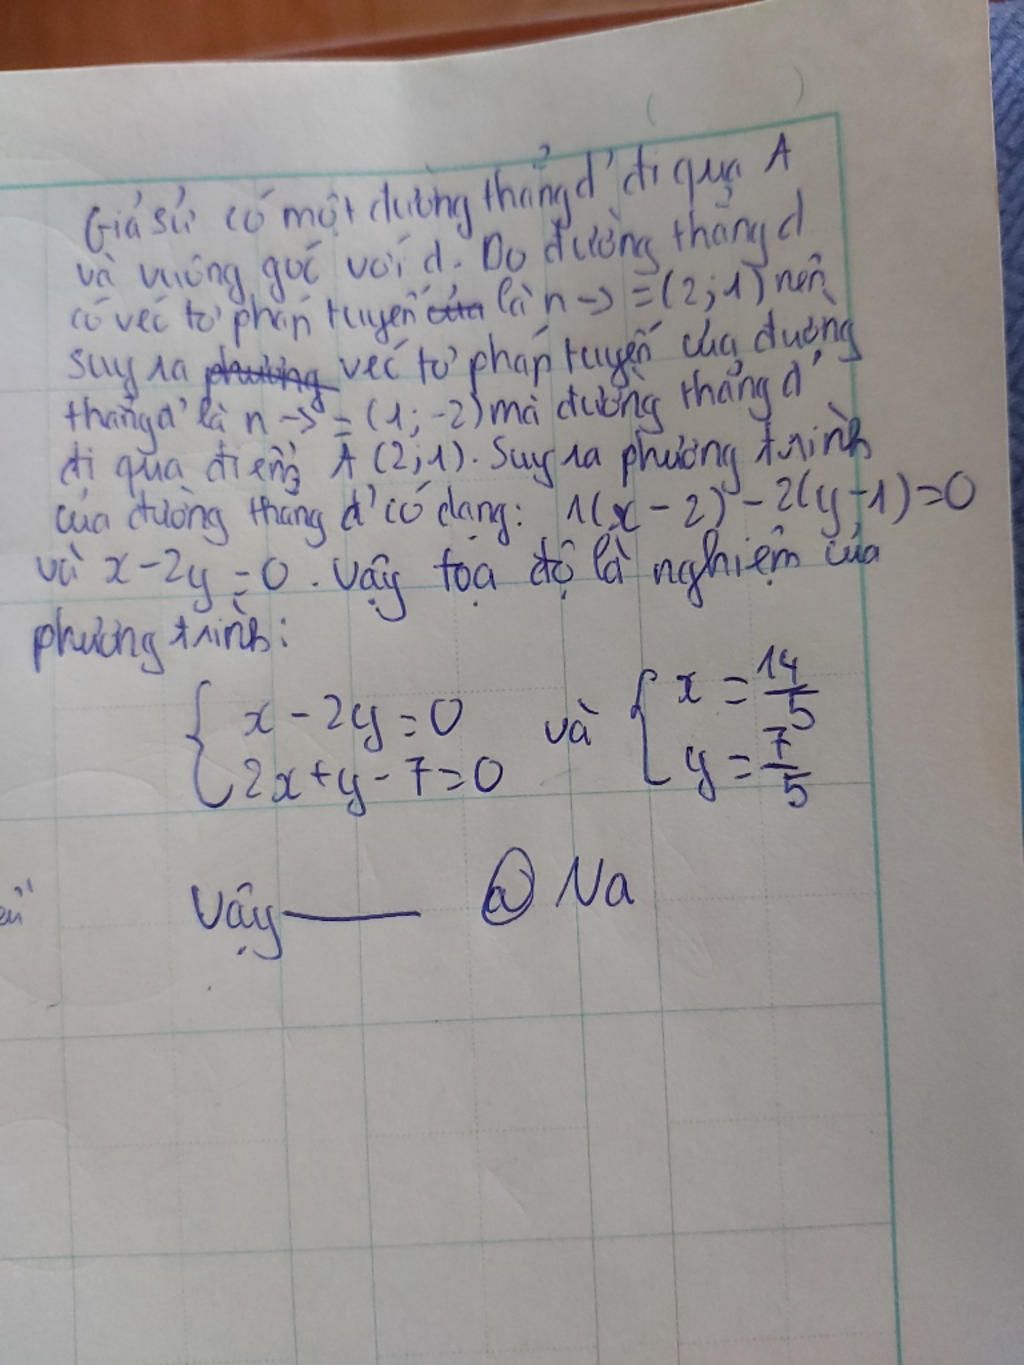 ( )
Giả sử có một đường thẳng d' đi qua A
và vuông góc với d. Do đường thẳng d
có véc tơ pháp tuyến của là n → = (2;1) nên
suy ra phương véc tơ pháp tuyến của đường
thẳng d' là n → = (1; -2) mà đường thẳng d'
đi qua điểm A (2;1). Suy ra phương trình
của đường thẳng d' có dạng: 1(x - 2) - 2(y - 1) = 0
và x - 2y = 0. Vậy tọa độ là nghiệm của
phương trình:
{ x - 2y = 0 và { x = 14/5
2x + y - 7 = 0 y = 7/5
Vậy —— ⓐ Na